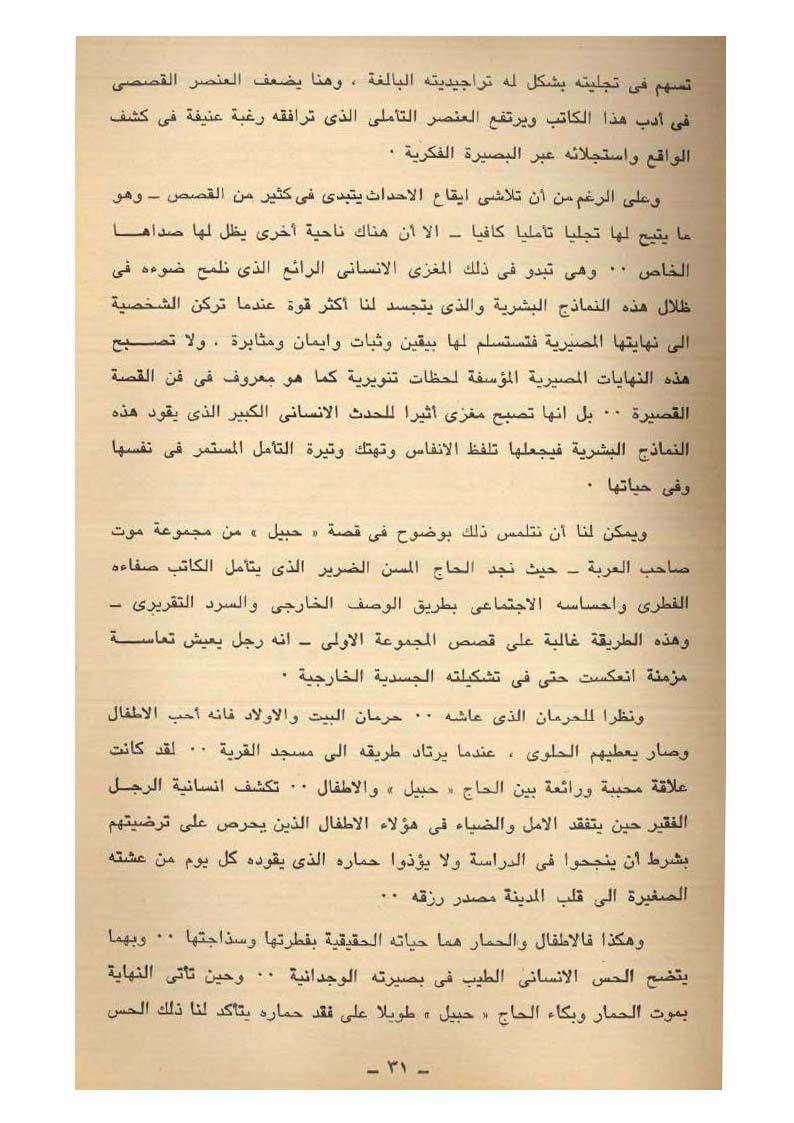 تسهم فى تجليته بشكل له تراجيديته البالغة ، وهنا يضعف العنصر القصصى
فى أدب هذا الكاتب ويرتفع العنصر التأملى الذى ترافقه رغبة عنيفة فى كشف
الواقع واستجلائه عبر البصيرة الفكرية ٠
وعلى الرغم من أن تلاشى ايقاع الاحداث يتبدى فى كثير من القصص ــ وهو
ما يتيح لها تجليا تأمليا كافيا ــ الا أن هناك ناحية أخرى يظل لها صداهــا
الخاص ٠٠ وهى تبدو فى ذلك المغزى الانسانى الرائع الذى نلمح ضوءه فى
ظلال هذه النماذج البشرية والذى يتجسد لنا أكثر قوة عندما تركن الشخصية
الى نهايتها المصيرية فتستسلم لها بيقين وثبات وايمان ومثابرة ، ولا تصــبح
هذه النهايات المصيرية المؤسفة لحظات تنويرية كما هو معروف فى فن القصة
القصيرة ٠٠ بل انها تصبح مغزى أثيرا للحدث الانسانى الكبير الذى يقود هذه
النماذج البشرية فيجعلها تلفظ الانفاس وتهتك وتيرة التأمل المستمر فى نفسها
وفى حياتها ٠
ويمكن لنا أن نتلمس ذلك بوضوح فى قصة « حبيل » من مجموعة موت
صاحب العربة ــ حيث نجد الحاج المسن الضرير الذى يتأمل الكاتب صفاءه
الفطرى واحساسه الاجتماعى بطريق الوصف الخارجى والسرد التقريرى ــ
وهذه الطريقة غالبة على قصص المجموعة الاولى ــ انه رجل يعيش تعاســة
مزمنة انعكست حتى فى تشكيلته الجسدية الخارجية ٠
ونظرا للحرمان الذى عاشه ٠٠ حرمان البيت والاولاد فانه أحب الاطفال
وصار يعطيهم الحلوى ، عندما يرتاد طريقه الى مسجد القرية ٠٠ لقد كانت
علاقة محببة ورائعة بين الحاج « حبيل » والاطفال ٠٠ تكشف انسانية الرجـل
الفقير حين يتفقد الامل والضياء فى هؤلاء الاطفال الذين يحرص على ترضيتهم
بشرط أن ينجحوا فى الدراسة ولا يؤذوا حماره الذى يقوده كل يوم من عشته
الصغيرة الى قلب المدينة مصدر رزقه ٠٠
وهكذا فالاطفال والحمار هما حياته الحقيقية بفطرتها وسذاجتها ٠٠ وبهما
يتضح الحس الانسانى الطيب فى بصيرته الوجدانية ٠٠ وحين تأتى النهاية
بموت الحمار وبكاء الحاج « حبيل » طويلا على فقد حماره يتأكد لنا ذلك الحس
ــ ٣١ ــ